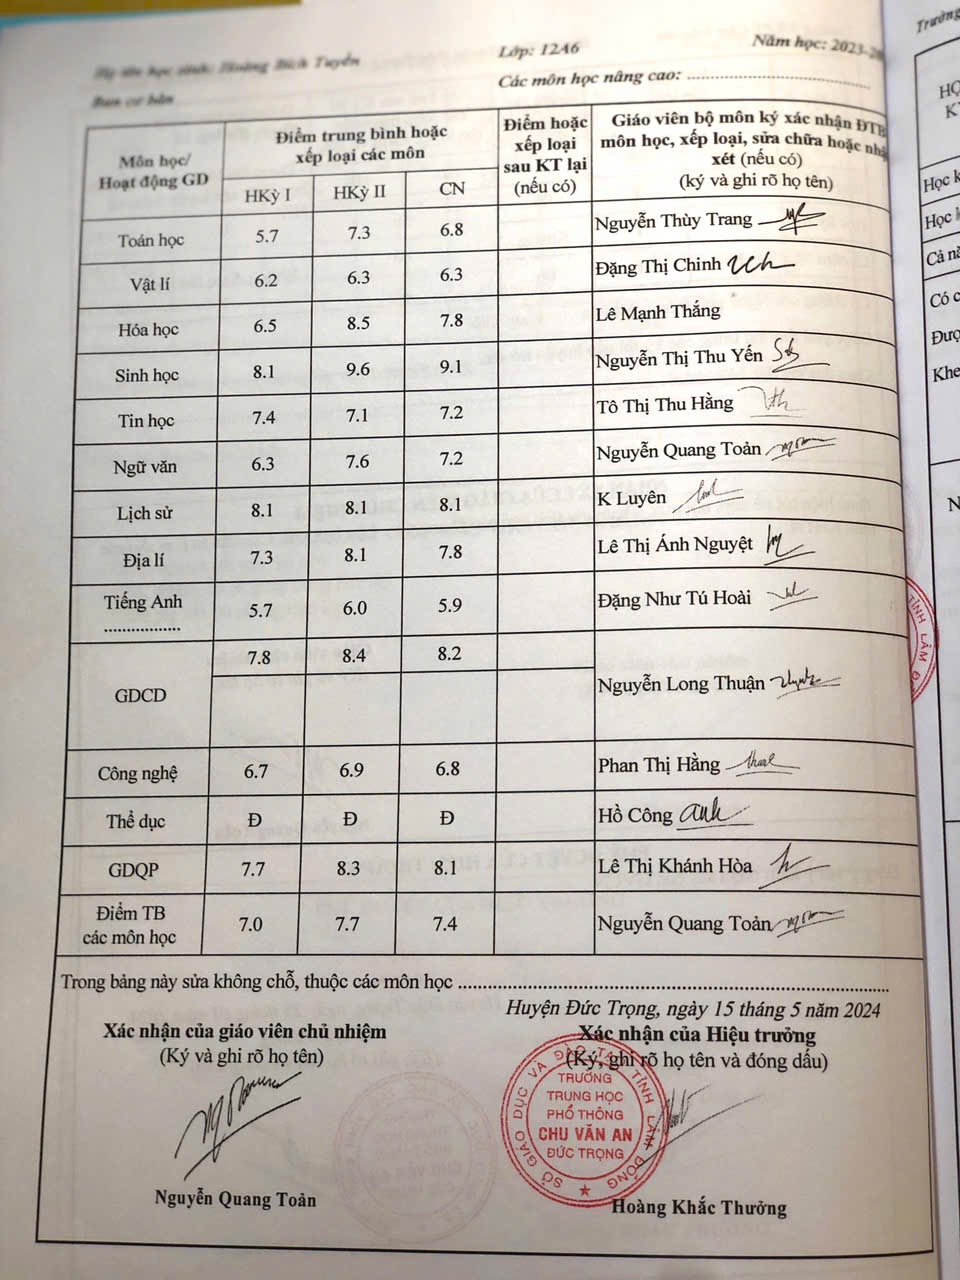 Họ tên học sinh: Hoàng Bích Tuyền Lớp: 12A6 Năm học: 2023-20
Ban cơ bản Các môn học nâng cao: ................................
Môn học/ Hoạt động GD Điểm trung bình hoặc xếp loại các môn Điểm hoặc xếp loại sau KT lại (nếu có) Giáo viên bộ môn ký xác nhận ĐTB môn học, xếp loại, sửa chữa hoặc nhận xét (nếu có) (ký và ghi rõ họ tên)
HKỳ I HKỳ II CN
Toán học 5.7 7.3 6.8 Nguyễn Thùy Trang
Vật lí 6.2 6.3 6.3 Đặng Thị Chinh
Hóa học 6.5 8.5 7.8 Lê Mạnh Thắng
Sinh học 8.1 9.6 9.1 Nguyễn Thị Thu Yến
Tin học 7.4 7.1 7.2 Tô Thị Thu Hằng
Ngữ văn 6.3 7.6 7.2 Nguyễn Quang Toản
Lịch sử 8.1 8.1 8.1 K Luyên
Địa lí 7.3 8.1 7.8 Lê Thị Ánh Nguyệt
Tiếng Anh 5.7 6.0 5.9 Đặng Như Tú Hoài
.................
GDCD 7.8 8.4 8.2 Nguyễn Long Thuận
Công nghệ 6.7 6.9 6.8 Phan Thị Hằng
Thể dục Đ Đ Đ Hồ Công anh
GDQP 7.7 8.3 8.1 Lê Thị Khánh Hòa
Điểm TB các môn học 7.0 7.7 7.4 Nguyễn Quang Toản
Trong bảng này sửa không chỗ, thuộc các môn học ................................
Huyện Đức Trọng, ngày 15 tháng 5 năm 2024
Xác nhận của giáo viên chủ nhiệm Xác nhận của Hiệu trưởng
(Ký và ghi rõ họ tên) (Ký, ghi rõ họ tên và đóng dấu)
SỞ GIÁO DỤC VÀ ĐÀO TẠO TỈNH LÂM ĐỒNG
TRƯỜNG
TRUNG HỌC
PHỔ THÔNG
CHU VĂN AN
ĐỨC TRỌNG
Nguyễn Quang Toản Hoàng Khắc Thưởng
Trường
Học k
Học
Cả nă
Có c
Đượ
Khe
TỈNH LÂM Đ